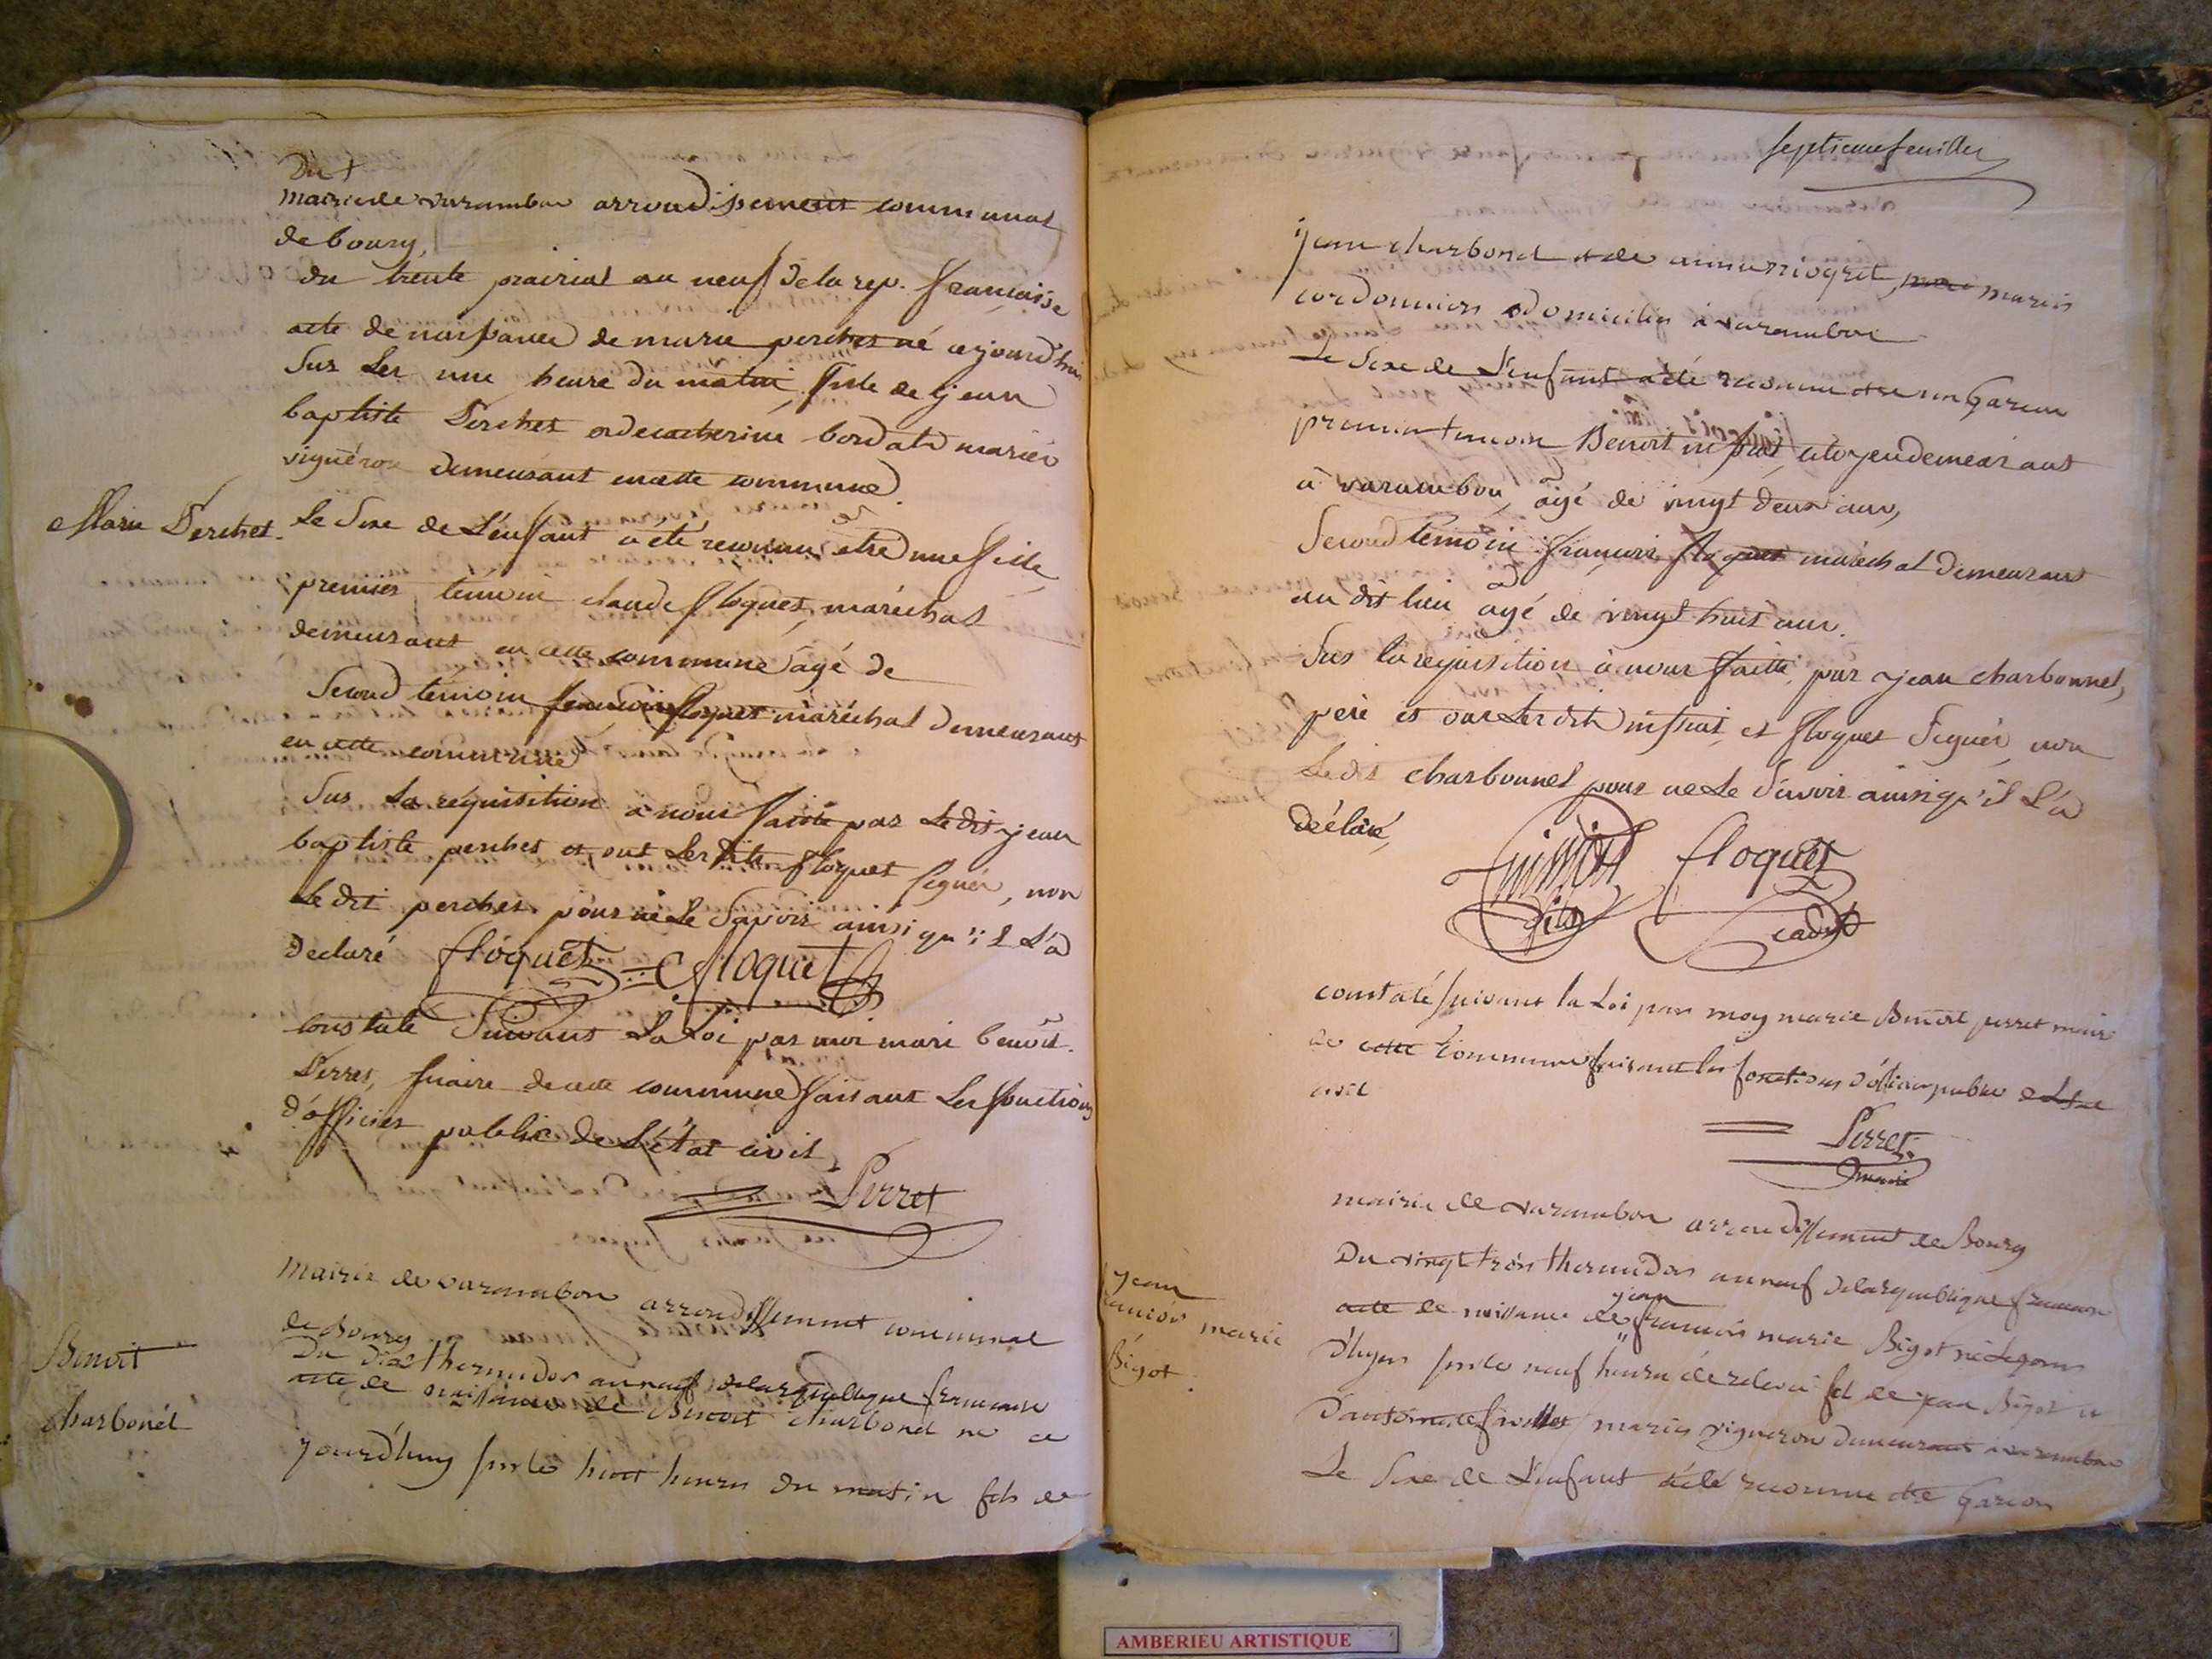 Du
mairie de varambon arrondissement communal
de bourg,
du trente prairial an neuf de la rep. française
acte de naissance de marie perches né cejourd'hui
sur les une heure du matin, fille de jean
baptiste Perches et de catherine bordat mariés
vigneron demeurant en cette commune
Marie Perches.
le sexe de L'enfant a été reconnu etre une fille
premier témoin claude floquet, maréchal
demeurant en cette commune agé de
second témoin françois floquet maréchal demeurant
en cette commune
sur la réquisition à nous faite par le dit jean
baptiste perches et ont les dits floquet signés, non
le dit perches pour ne le savoir ainsi qu'il L'a
declaré floquet floquet
constaté suivant La Loi par moi mari benoit
Perret, maire de cette commune faisant les fonctions
d'officier public de L'état civil
Perret
mairie de varambon arrondissement communal
de Bourg
Benoit
charbonel
Du dix thermidor an neuf de la republique francaise
acte de naissance de Benoit charbonel né ce
jourd'huy sur les huit heures du matin fils de
septieme feuillet
jean charbonel et de mariés
cordonnier domicilies a varambon
Le sexe de L'enfant a été reconnu etre un Garcon
premier temoin Benoit citoyen demeurant
à varambon, âgé de vingt deux ans,
second temoin françois floquet maréchal demeurant
au dit lieu âgé de vingt huit ans.
sur la requisition à nous faitte par jean charbonnel,
père et ont les dits et floquet signés, non
Le dit charbonnel pour ne le savoir ainsi qu'il L'a
déclaré,
floquet
cadet
constaté suivant la Loi par moy marie Benoit perret maire
de cette commune faisant les fonctions d'officier public de L'état
civil
Perret
maire
mairie de varambon arrondissement de Bourg
jean
francois marie
Bigot.
Du vingt trois thermidor an neuf de la republique francaise
acte de naissance de jean francois marie Bigot né le jour
d'hyer sur les neuf heures de relevé fils de jean Bigot et
mariés vigneron demeurant a varambon
Le sexe de L'enfant a été reconnu etre Garcon
AMBERIEU ARTISTIQUE